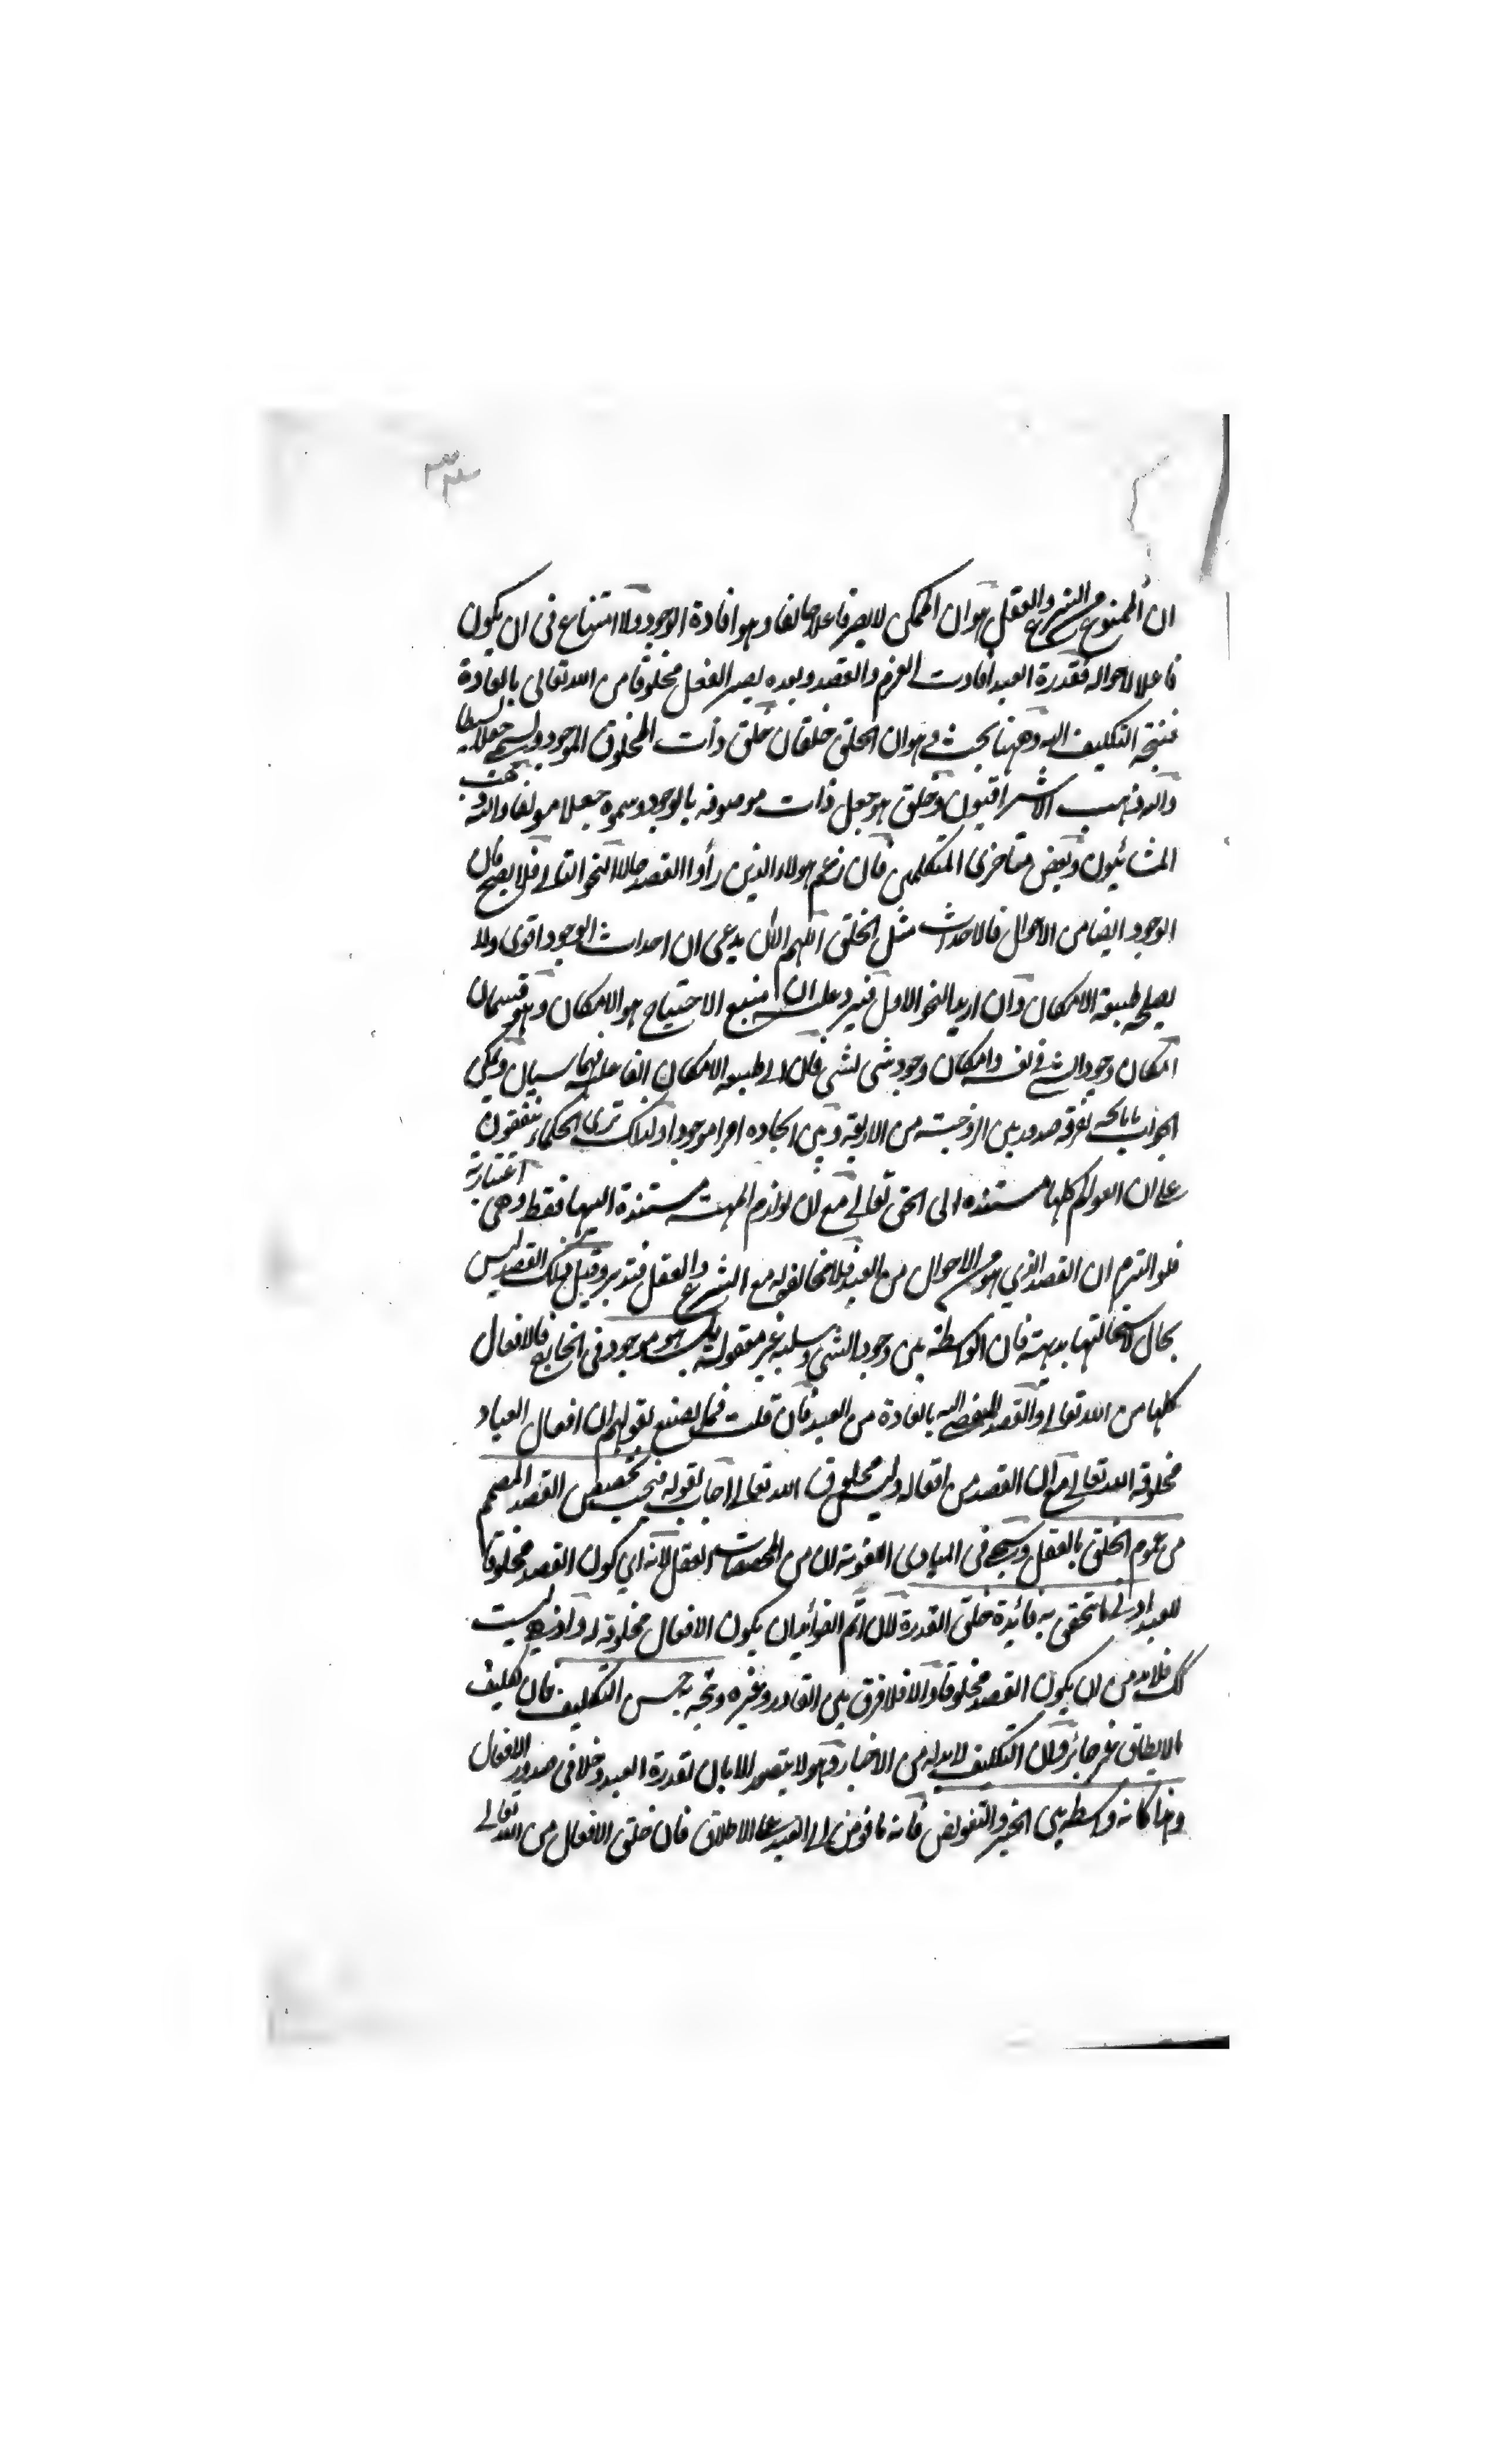 ان الممنوع من الشرع والعقل هو ان الممكن لا يصير فاعلا خالقا وهو افادة الوجود ولا امتناع فى ان يكون
فاعلا لاحواله فقدرة العبد افادت العزم والقصد وبعده يصير الفعل مخلوقا من الله تعالى بالعادة
فيتجه التكليف اليه وههنا بحث وهو ان الخلق خلقان خلق ذات المخلوق الموجود ويسمى جعلا بسيطا
واليه ذهب الاشراقيون وخلق هو جعل ذات موصوفه بالوجود وسموه جعلا مولفا واليه ذهبت
المشائيون وبعض متاخرى المتكلمين فان زعم هولاء الذين رأوا القصد حالا النحو الثانى فلا يصح فان
الوجود ايضا من الاحوال فالاحداث مثل الخلق اللهم الا ان يدعى ان احداث الوجود اقوى ولا
يصلحه طبيعة الامكان وان اريد النحو الاول فيرد عليه ان منبع الاحتياج هو الامكان وهو قسمان
امكان وجود الشى فى نفسه وامكان وجود شى لشى فان طبيعة الامكان الفاعل فيهما سيان ويمكن
الجواب بابداء تفرقه صدور بين الزوجية من الاربعة وبين ايجاده امرا موجودا ولذلك ترى الحكماء يتفقون
على ان العوالم كلها مستنده الى الحق تعالى مع ان لوازم المهية مستندة اليها فقط وهى اعتبارية
فلو التزم ان القصد الذي هو من الاحوال من العبد فلا مخالفة مع الشرع والعقل فتدبر وقيل ذلك القصد ليس
بحال لاستحالتها بديهة فان الواسطة بين وجود الشى وسلبه غير معقولة بل هو موجود فى الخارج فالافعال
كلها من الله تعالى والقصد المفضى اليه بالعادة من العبد فان قلت فما يصنع بقولهم ان افعال العباد
مخلوقه الله تعالى مع ان القصد من افعاله وليس مخلوق الله تعالى اجاب بقوله فيجب تخصيص القصد المصمم
من عموم الخلق بالعقل وسيجئ فى المبادى اللغوية ان من المخصصات العقل لانه اي كون القصد مخلوقا
للعبد ادنى ما يتحقق به فائدة خلق القدرة لان اتم الفوائد ان يكون الافعال مخلوقه له واذ هى ليست
كك فلا بد من ان يكون القصد مخلوقا والا فلا فرق بين القادر وغيره ويتجه به حسن التكليف فان تكليف
ما لا يطاق غير جائز ولان التكليف لا بد له من الاختيار وهو لا يتصور الا بان لقدرة العبد دخلا فى صدور الافعال
وهذا كانه واسطة بين الجبر والتفويض فانه ما فوض الى العبد على الاطلاق فان خلق الافعال من الله تعالى